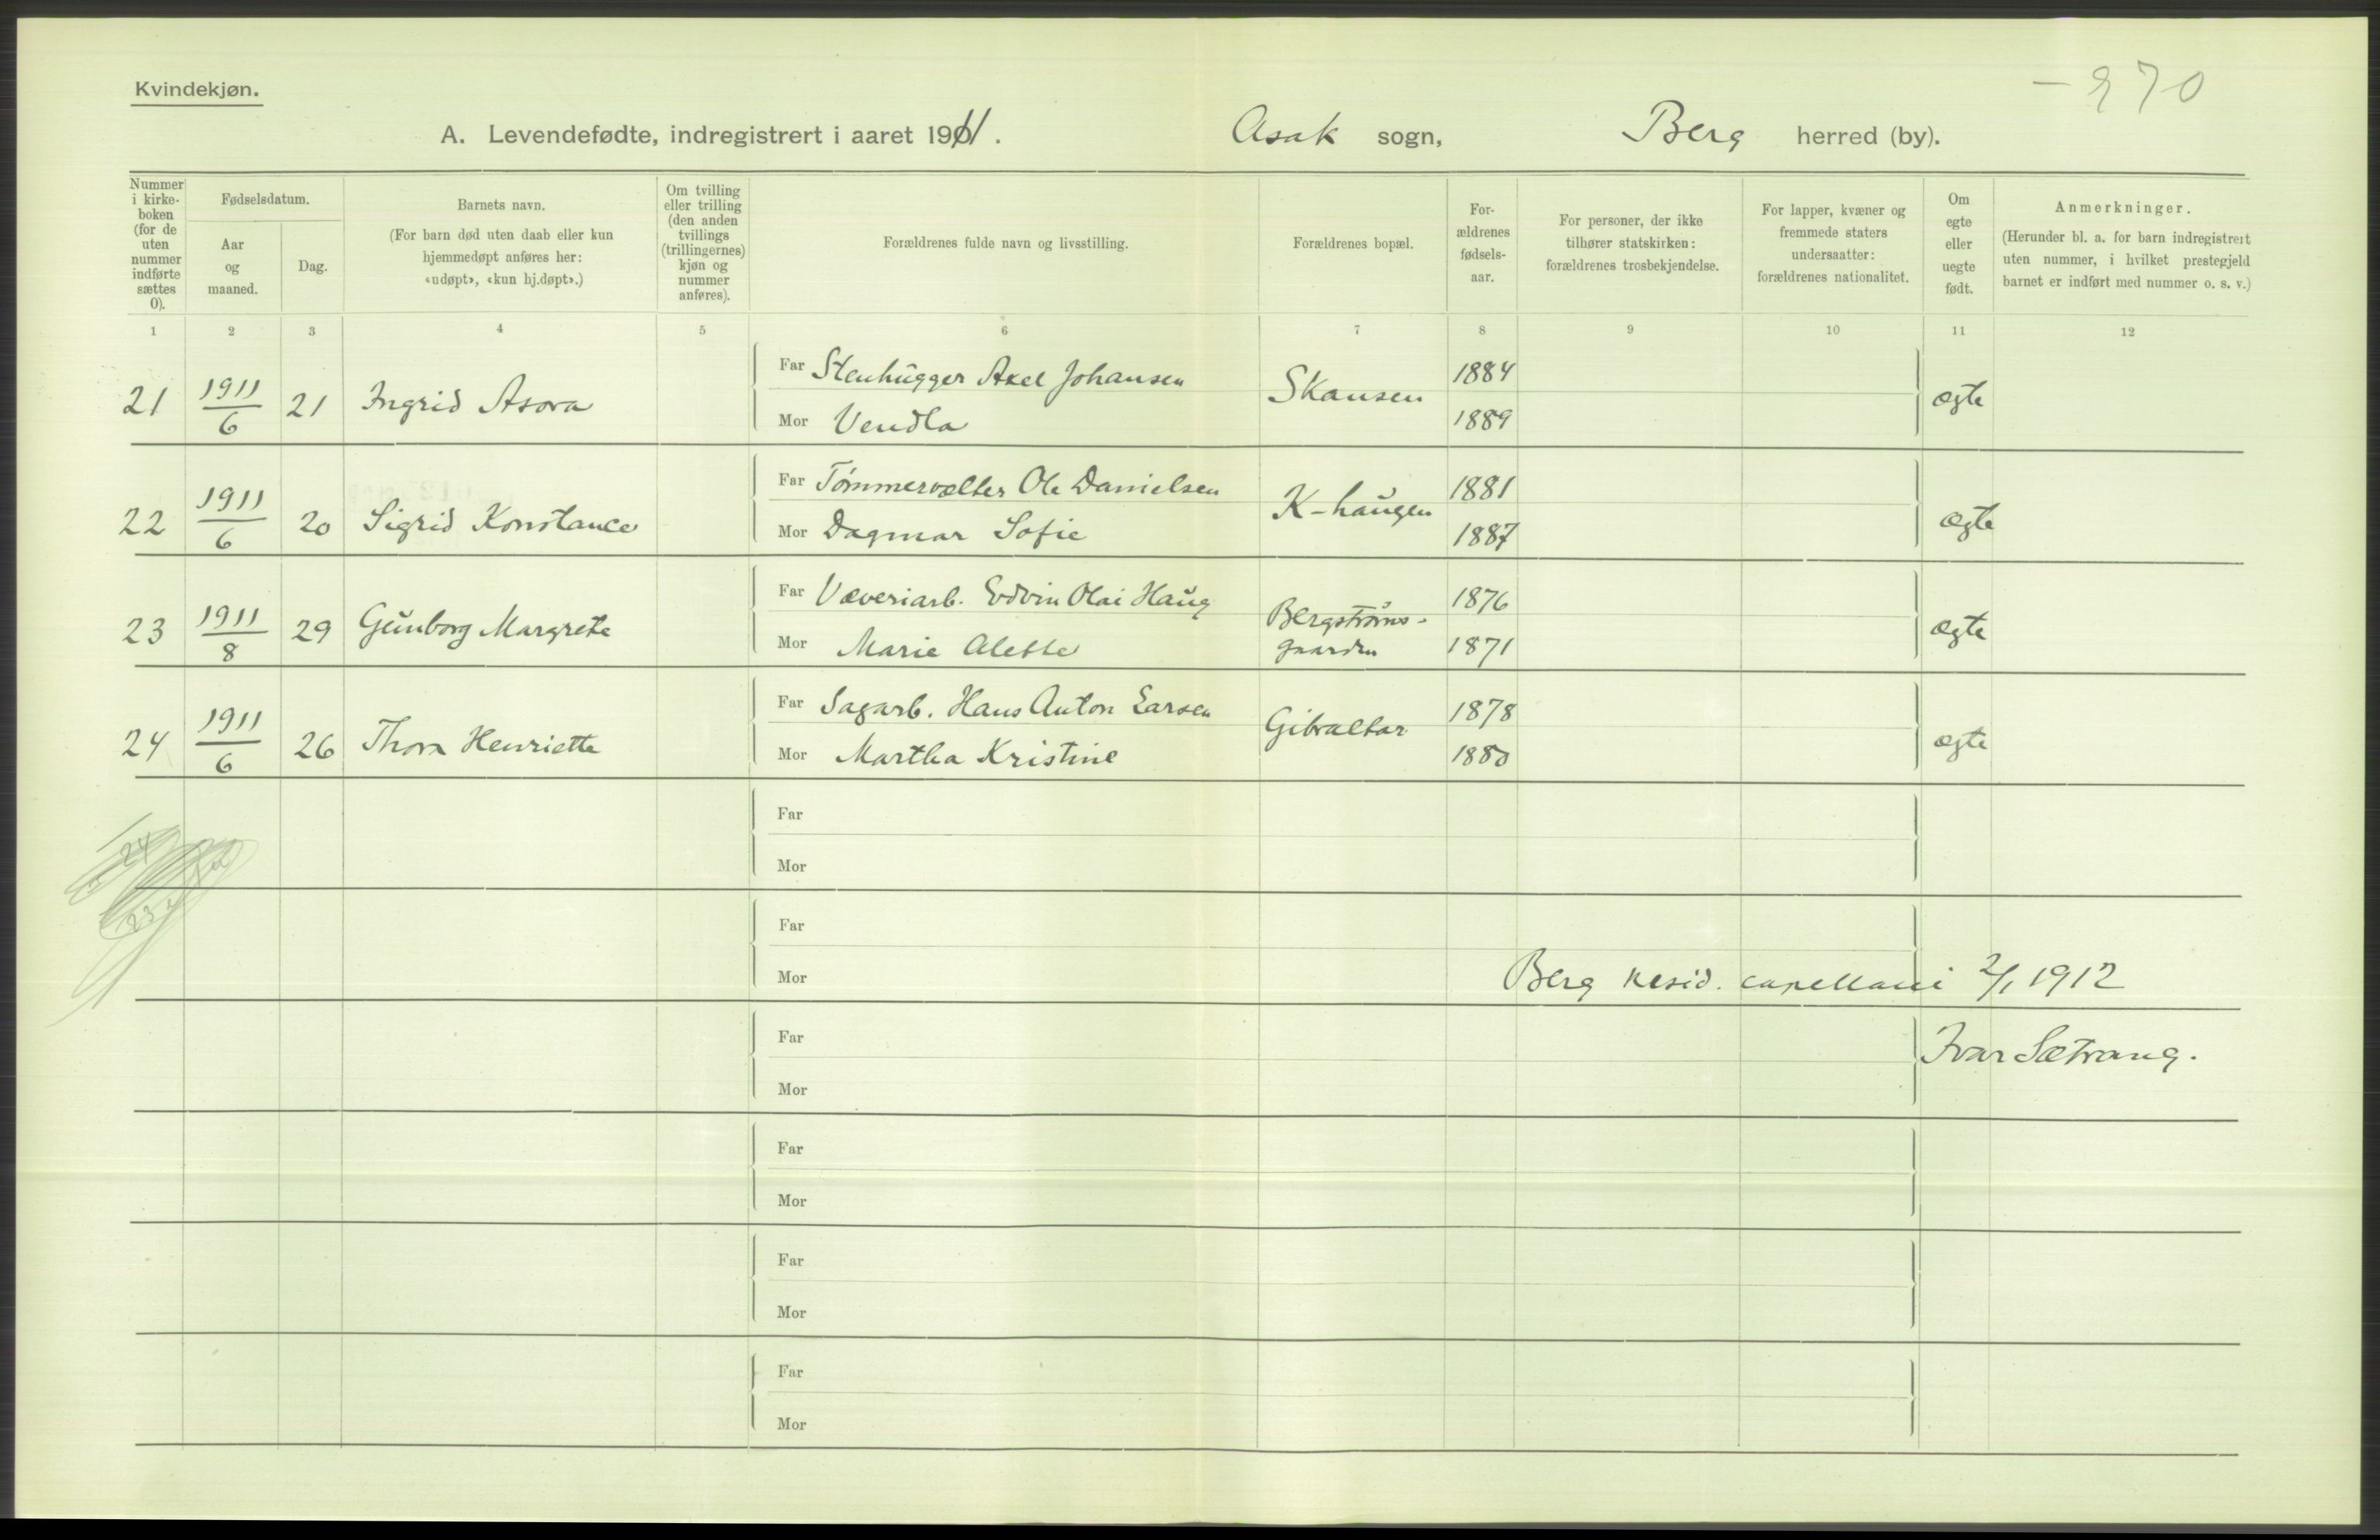 Kvindekjøn.
- 970
A. Levendefødte, indregistrert i aaret 1911. Asak sogn, Berg herred (by).
Nummer i kirkeboken (for de uten nummer indførte sættes 0).
Fødselsdatum.
Aar og maaned.
Dag.
Barnets navn.
(For barn død uten daab eller kun hjemmedøpt anføres her: «udøpt», «kun hj.døpt».)
Om tvilling eller trilling (den anden tvillings (trillingernes) kjøn og nummer anføres).
Forældrenes fulde navn og livsstilling.
Forældrenes bopæl.
Forældrenes fødselsaar.
For personer, der ikke tilhører statskirken: forældrenes trosbekjendelse.
For lapper, kvæner og fremmede staters undersaatter: forældrenes nationalitet.
Om egte eller uegte født.
Anmerkninger.
(Herunder bl. a. for barn indregistrert uten nummer, i hvilket prestegjeld barnet er indført med nummer o. s. v.)
1 2 3 4 5 6 7 8 9 10 11 12
21 1911/6 21 Ingrid Asora Far Stenhugger Axel Johansen Skansen 1884 ægte
Mor Vendla 1889
22 1911/6 20 Sigrid Konstance Far Tømmervælter Ole Danielsen K-haugen 1881 ægte
Mor Dagmar Sofie 1887
23 1911/8 29 Gunborg Margrete Far Væveriarb. Edvin Olai Haug Bergstrøms- 1876 ægte
Mor Marie Alette gaarden 1871
24 1911/6 26 Thora Henriette Far Sagarb. Hans Anton Larsen Gibraltar 1878 ægte
Mor Martha Kristine 1880
Far
Mor
Far
Mor
Berg resid. capellani 2/1 1912
Far
Ivar Sætrang.
Mor
Far
Mor
Far
Mor
Far
Mor